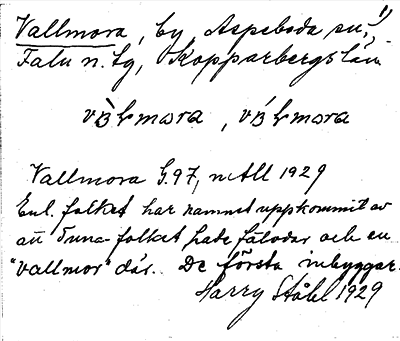 Vallmora, by, Aspeboda sn, 1)
Falu n. tg, Kopparbergs län
Vallmora G.97, 1929
Enl. folket har namnet uppkommit av
att Tuna-folket hade fäbodar och en
"vallmor" där. De första inbyggar.
Harry Ståhl 1929